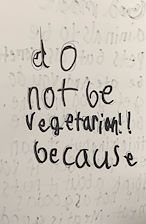 do
not be
vegetarian!!
because